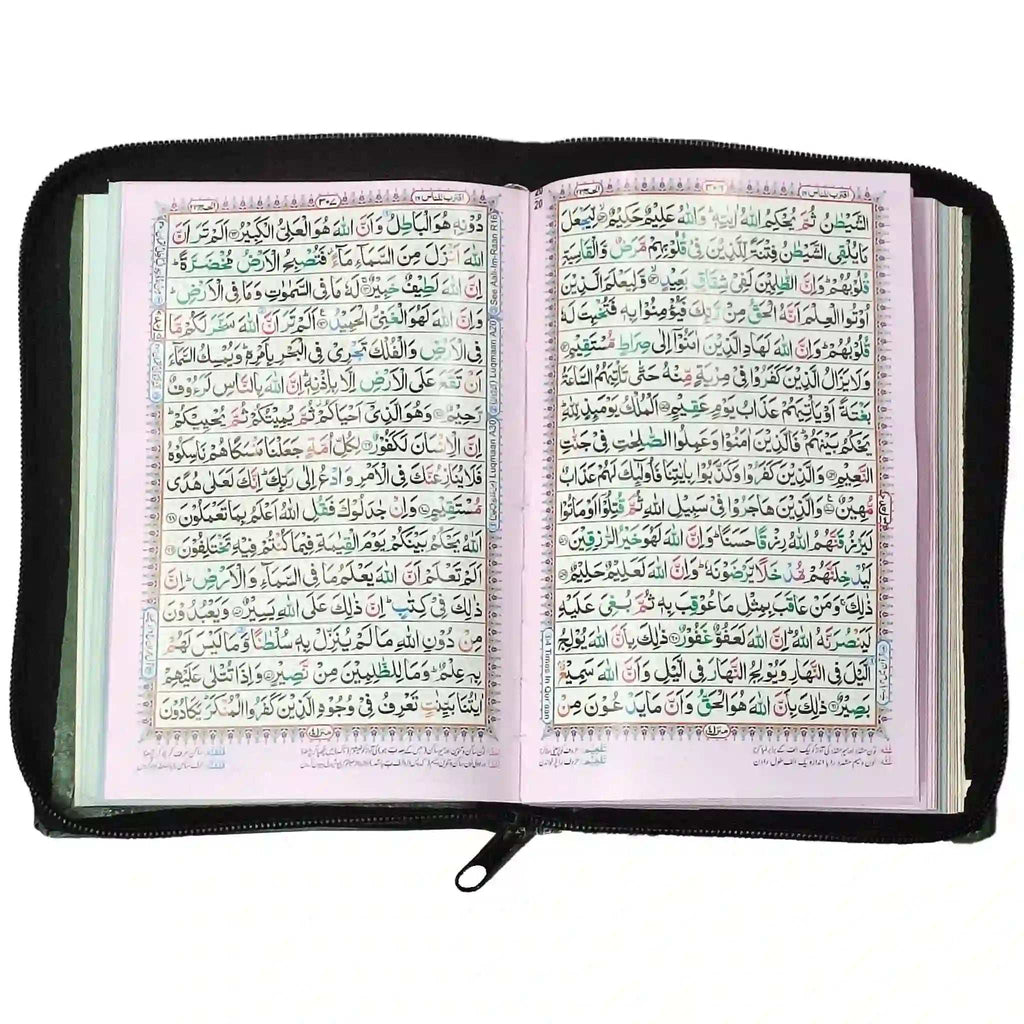 اقترب للناس ١٧
٣٠٦
الحج ٢٢
الشَّيْطٰنُ ثُمَّ يُحْكِمُ اللهُ اٰيٰتِهٖ ؕ وَاللهُ عَلِيْمٌ حَكِيْمٌ ۙ لِّيَجْعَلَ
مَا يُلْقِى الشَّيْطٰنُ فِتْنَةً لِّلَّذِيْنَ فِىْ قُلُوْبِهِمْ مَّرَضٌ وَّالْقَاسِيَةِ
قُلُوْبُهُمْ ؕ وَاِنَّ الظّٰلِمِيْنَ لَفِىْ شِقَاقٍۢ بَعِيْدٍ ۙ وَّلِيَعْلَمَ الَّذِيْنَ
اُوْتُوا الْعِلْمَ اَنَّهُ الْحَقُّ مِنْ رَّبِّكَ فَيُؤْمِنُوْا بِهٖ فَتُخْبِتَ لَهٗ
قُلُوْبُهُمْ ؕ وَاِنَّ اللهَ لَهَادِ الَّذِيْنَ اٰمَنُوْۤا اِلٰى صِرَاطٍ مُّسْتَقِيْمٍ
وَلَا يَزَالُ الَّذِيْنَ كَفَرُوْا فِىْ مِرْيَةٍ مِّنْهُ حَتّٰى تَاْتِيَهُمُ السَّاعَةُ
بَغْتَةً اَوْ يَاْتِيَهُمْ عَذَابُ يَوْمٍ عَقِيْمٍ اَلْمُلْكُ يَوْمَئِذٍ لِّلّٰهِ ؕ
يَحْكُمُ بَيْنَهُمْ ؕ فَالَّذِيْنَ اٰمَنُوْا وَعَمِلُوا الصّٰلِحٰتِ فِىْ جَنّٰتِ
النَّعِيْمِ وَالَّذِيْنَ كَفَرُوْا وَكَذَّبُوْا بِاٰيٰتِنَا فَاُولٰٓئِكَ لَهُمْ عَذَابٌ
مُّهِيْنٌ وَالَّذِيْنَ هَاجَرُوْا فِىْ سَبِيْلِ اللهِ ثُمَّ قُتِلُوْۤا اَوْ مَاتُوْا
لَيَرْزُقَنَّهُمُ اللهُ رِزْقًا حَسَنًا ؕ وَاِنَّ اللهَ لَهُوَ خَيْرُ الرّٰزِقِيْنَ
لَيُدْخِلَنَّهُمْ مُّدْخَلًا يَّرْضَوْنَهٗ ؕ وَاِنَّ اللهَ لَعَلِيْمٌ حَلِيْمٌ
ذٰلِكَ ۚ وَمَنْ عَاقَبَ بِمِثْلِ مَا عُوْقِبَ بِهٖ ثُمَّ بُغِىَ عَلَيْهِ
لَيَنْصُرَنَّهُ اللهُ ؕ اِنَّ اللهَ لَعَفُوٌّ غَفُوْرٌ ذٰلِكَ بِاَنَّ اللهَ يُوْلِجُ
الَّيْلَ فِى النَّهَارِ وَيُوْلِجُ النَّهَارَ فِى الَّيْلِ وَاَنَّ اللهَ سَمِيْعٌۢ
بَصِيْرٌ ذٰلِكَ بِاَنَّ اللهَ هُوَ الْحَقُّ وَاَنَّ مَا يَدْعُوْنَ مِنْ
منزل ٤
20
20
1st Times In Qur'aan
اقترب للناس ١٧
٣٠٧
الحج ٢٢
دُوْنِهٖ هُوَ الْبَاطِلُ وَاَنَّ اللهَ هُوَ الْعَلِىُّ الْكَبِيْرُ اَلَمْ تَرَ اَنَّ
اللهَ اَنْزَلَ مِنَ السَّمَآءِ مَآءً ؗ فَتُصْبِحُ الْاَرْضُ مُخْضَرَّةً ؕ
اِنَّ اللهَ لَطِيْفٌ خَبِيْرٌ لَهٗ مَا فِى السَّمٰوٰتِ وَمَا فِى الْاَرْضِ ؕ
وَاِنَّ اللهَ لَهُوَ الْغَنِىُّ الْحَمِيْدُ اَلَمْ تَرَ اَنَّ اللهَ سَخَّرَ لَكُمْ مَّا
فِى الْاَرْضِ وَالْفُلْكَ تَجْرِىْ فِى الْبَحْرِ بِاَمْرِهٖ ؕ وَيُمْسِكُ السَّمَآءَ
اَنْ تَقَعَ عَلَى الْاَرْضِ اِلَّا بِاِذْنِهٖ ؕ اِنَّ اللهَ بِالنَّاسِ لَرَءُوْفٌ
رَّحِيْمٌ وَهُوَ الَّذِىْۤ اَحْيَاكُمْ ؗ ثُمَّ يُمِيْتُكُمْ ثُمَّ يُحْيِيْكُمْ ؕ
اِنَّ الْاِنْسَانَ لَكَفُوْرٌ لِكُلِّ اُمَّةٍ جَعَلْنَا مَنْسَكًا هُمْ نَاسِكُوْهُ
فَلَا يُنَازِعُنَّكَ فِى الْاَمْرِ وَادْعُ اِلٰى رَبِّكَ ؕ اِنَّكَ لَعَلٰى هُدًى
مُّسْتَقِيْمٍ وَاِنْ جٰدَلُوْكَ فَقُلِ اللهُ اَعْلَمُ بِمَا تَعْمَلُوْنَ
اَللهُ يَحْكُمُ بَيْنَكُمْ يَوْمَ الْقِيٰمَةِ فِيْمَا كُنْتُمْ فِيْهِ تَخْتَلِفُوْنَ
اَلَمْ تَعْلَمْ اَنَّ اللهَ يَعْلَمُ مَا فِى السَّمَآءِ وَالْاَرْضِ ؕ اِنَّ
ذٰلِكَ فِىْ كِتٰبٍ ؕ اِنَّ ذٰلِكَ عَلَى اللهِ يَسِيْرٌ وَيَعْبُدُوْنَ
مِنْ دُوْنِ اللهِ مَا لَمْ يُنَزِّلْ بِهٖ سُلْطٰنًا وَّمَا لَيْسَ لَهُمْ
بِهٖ عِلْمٌ ؕ وَمَا لِلظّٰلِمِيْنَ مِنْ نَّصِيْرٍ وَاِذَا تُتْلٰى عَلَيْهِمْ
اٰيٰتُنَا بَيِّنٰتٍ تَعْرِفُ فِىْ وُجُوْهِ الَّذِيْنَ كَفَرُوا الْمُنْكَرَ ؕ يَكَادُوْنَ
منزل ٤
See Aali-Im-Raan R16
Luqmaan A20
Luqmaan A30